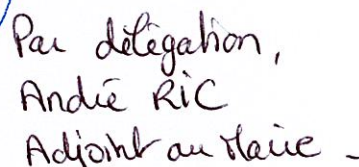 Par délégation,
André RIC
Adjoint au Maire